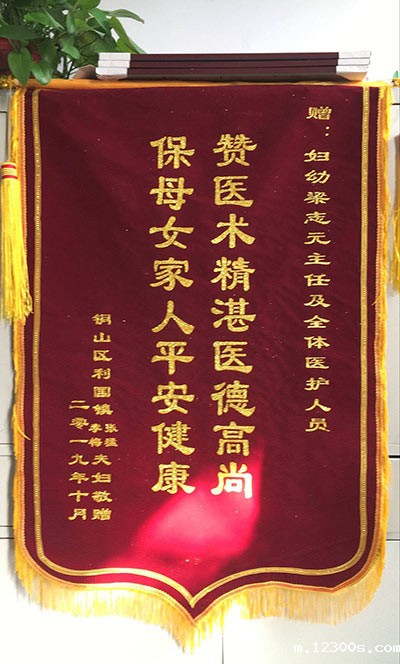 赠：妇幼梁志元主任及全体医护人员
赞医术精湛医德高尚
保母女家人平安健康
铜山区利国镇张猛李梅夫妇敬赠
二零一九年十月
m.12300s.com